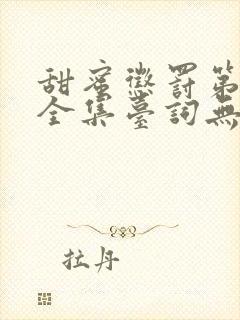 甜蜜懲罰第
全集臺詞無
拉丹